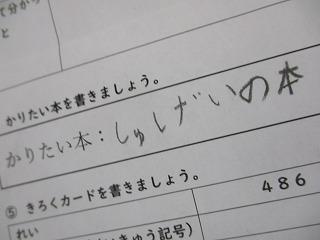 て分か
と
かりたい本を書きましょう。
かりたい本：しゅげいの本
⑤ きろくカードを書きましょう。
れい
486
きゅう記号)